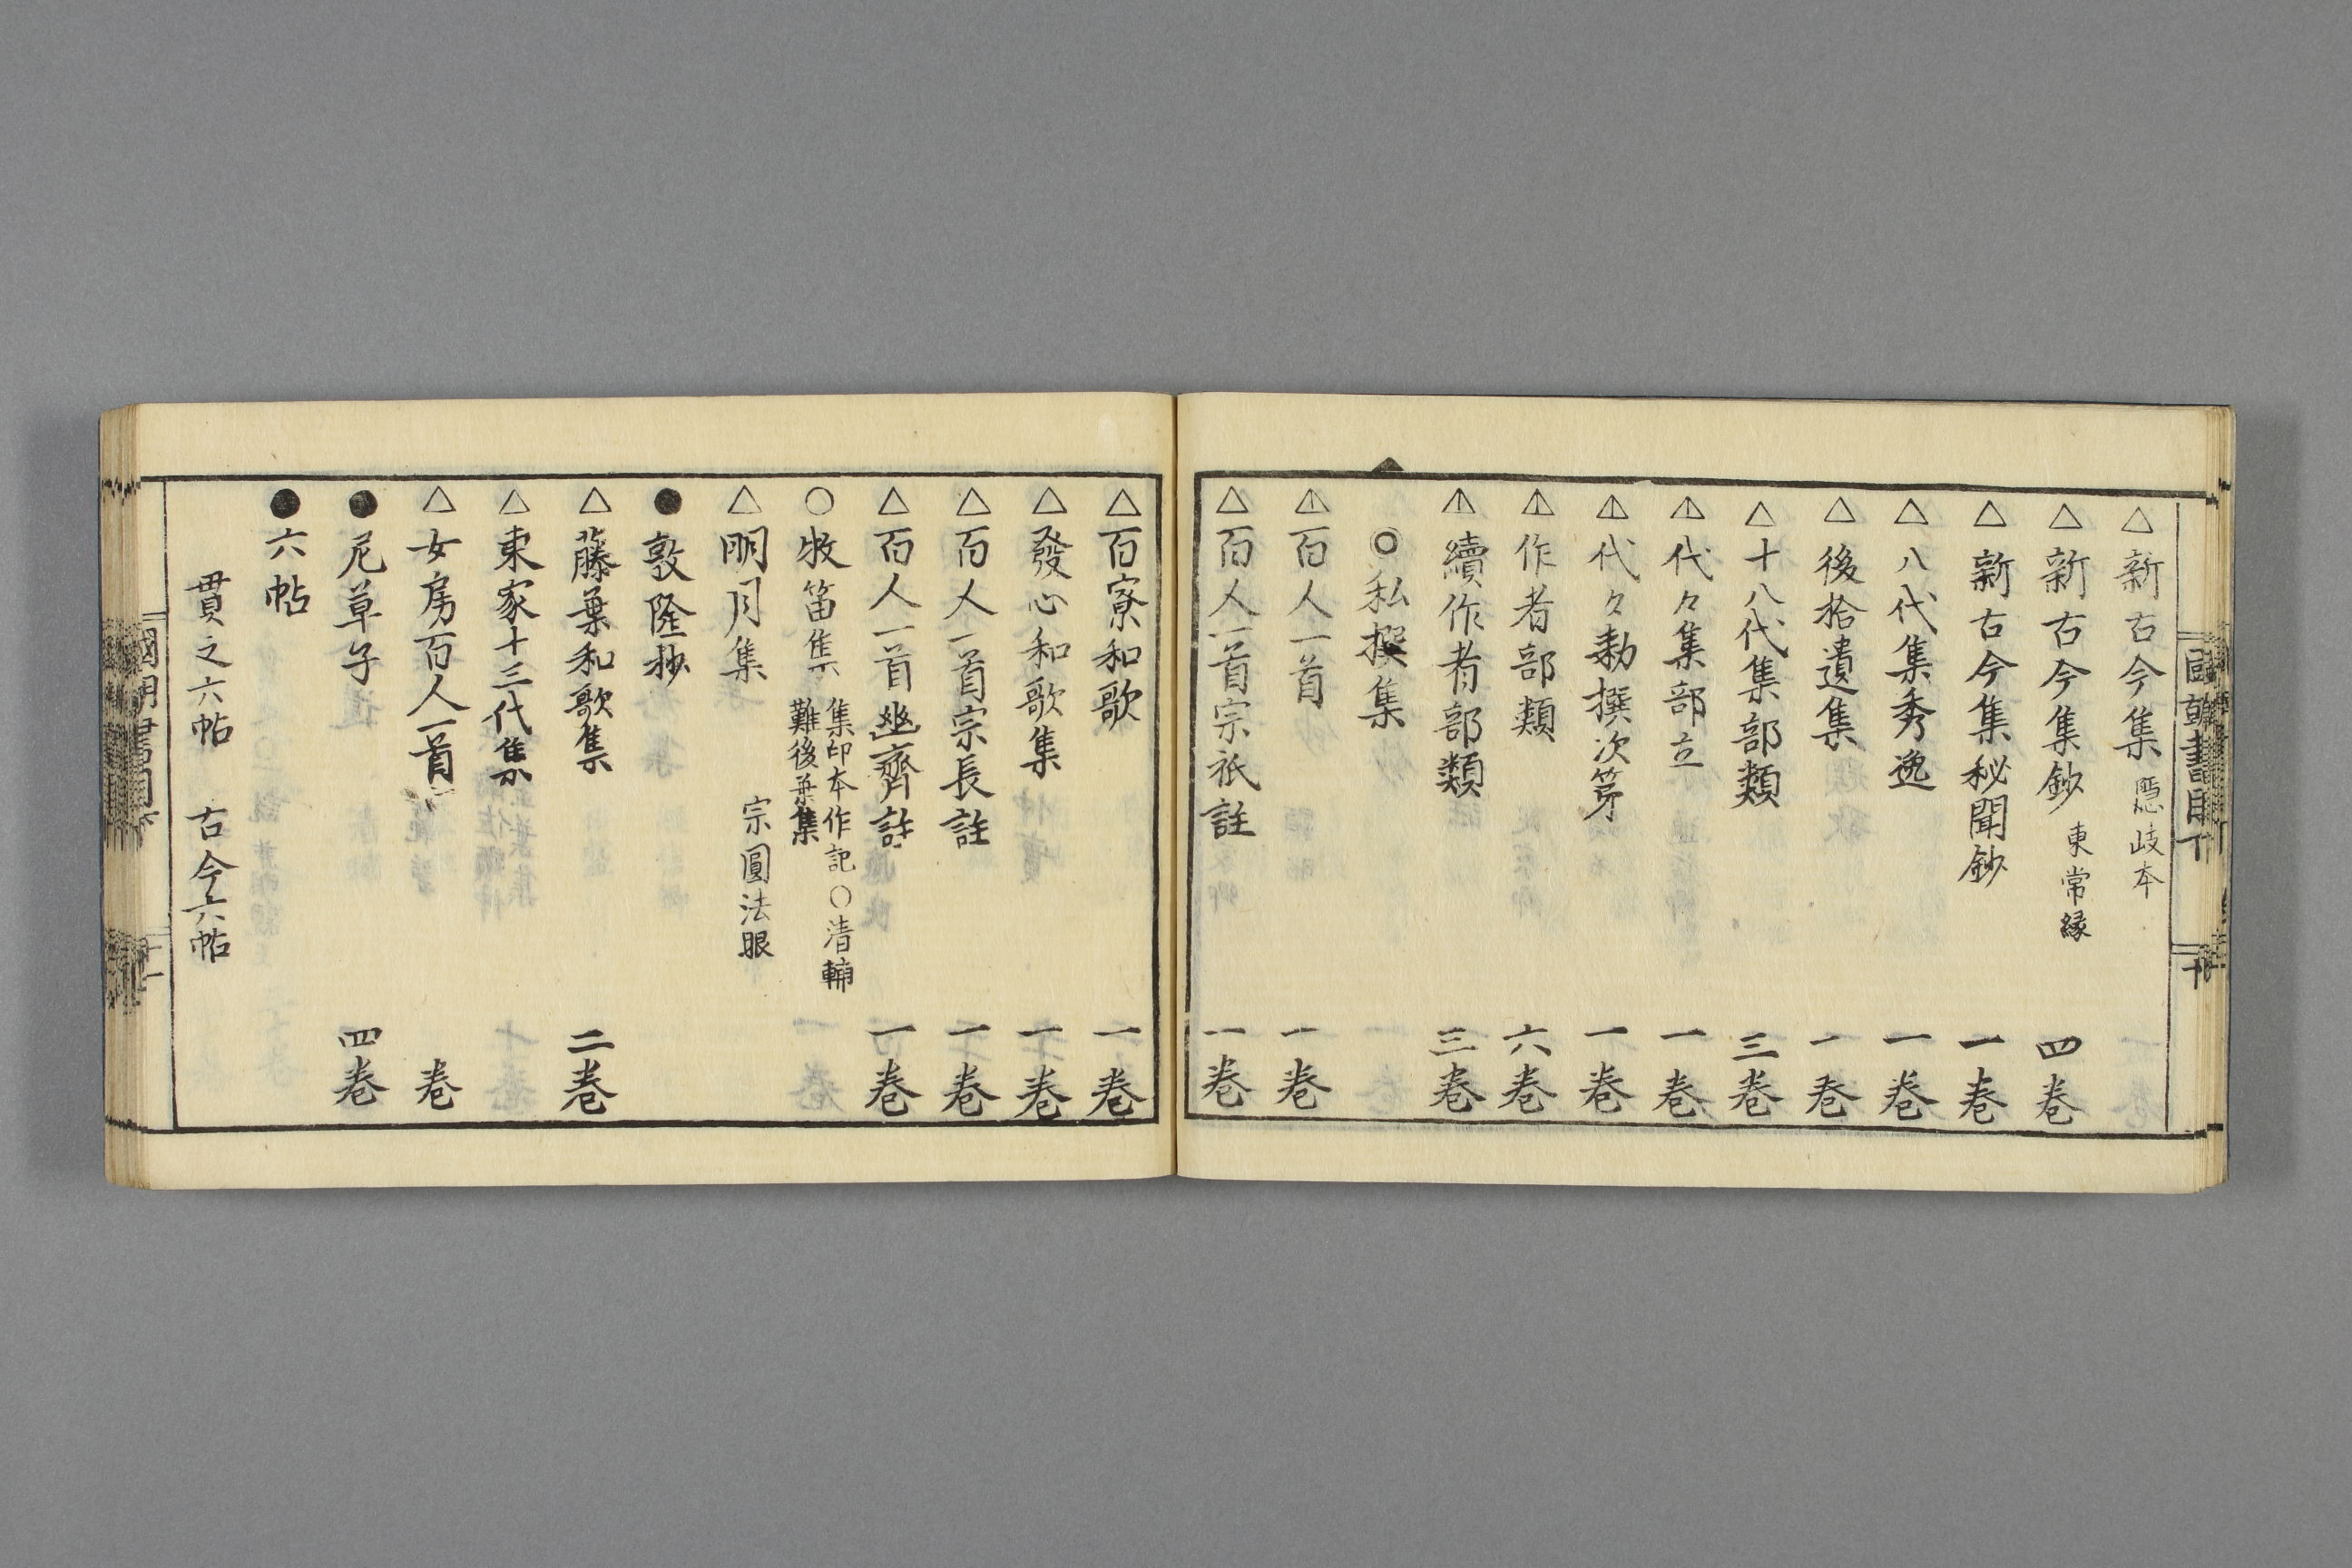 國朝書目下
十
△新古今集 隱岐本
△新古今集鈔 東常縁 四巻
△新古今集秘聞鈔 一巻
△八代集秀逸 一巻
△後拾遺集 一巻
△十八代集部類 三巻
△代々集部立 一巻
△代々勅撰次第 一巻
△作者部類 六巻
△續作者部類 三巻
◎私撰集
△百人一首 一巻
△百人一首宗祇註 一巻
△百寮和歌 一巻
△發心和歌集 一巻
△百人一首宗長註 一巻
△百人一首幽齋註 一巻
○牧笛集 集印本作記○清輔
難後葉集
△明月集 宗圓法眼
●敦隆抄
△藤葉和歌集 二巻
△東家十三代集
△女房百人一首 巻
●尼草子 四巻
●六帖
貫之六帖 古今六帖
國朝書目下
十一